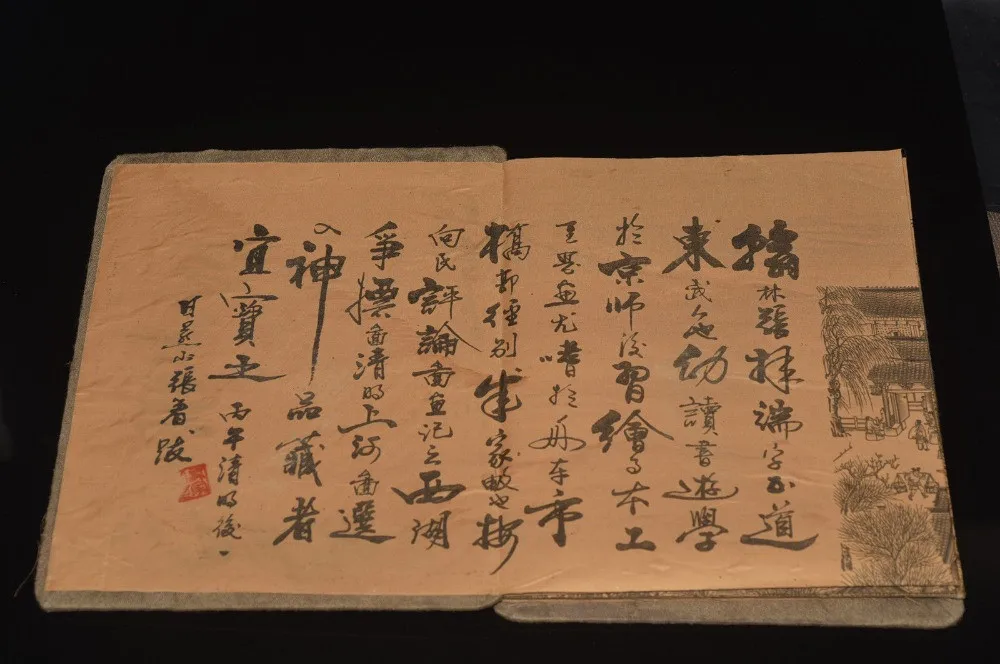 翰林張擇端字正道
東武人也幼讀書遊學
於京師後習繪事本工
其界畫尤嗜於舟車市
橋郭徑別成家數也按
向氏評論圖畫記云西湖
爭標圖清明上河圖選
入神品藏者
宜寶之丙午清明後一
日燕山張著跋